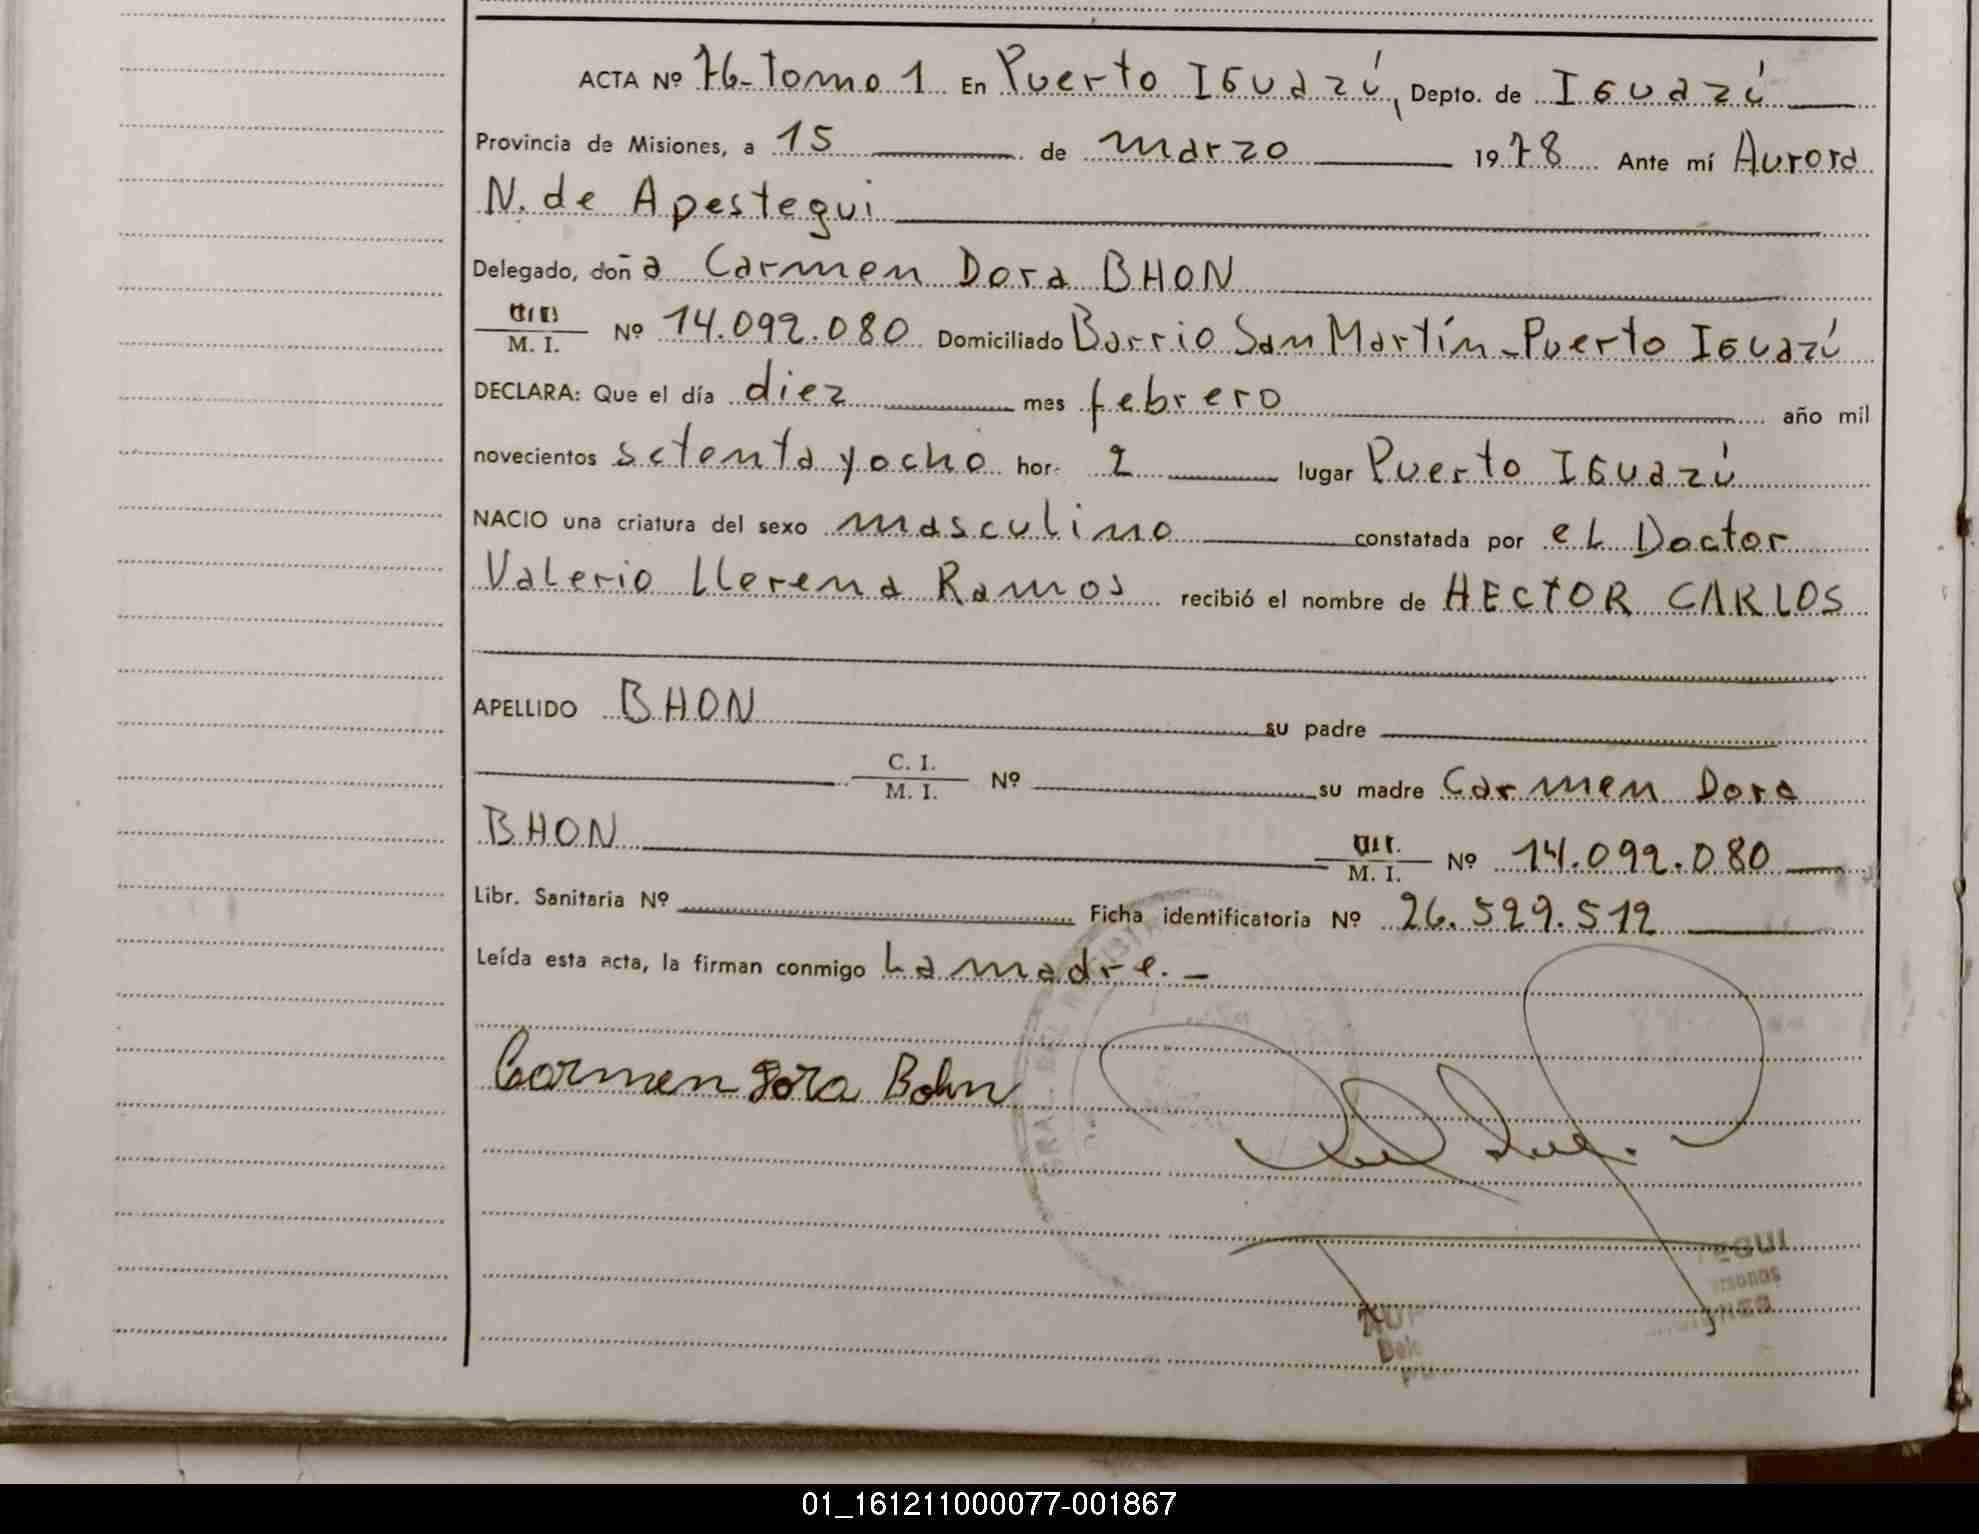 ACTA Nº 76-Tomo 1 En Puerto Iguazú, Depto. de Iguazú
Provincia de Misiones, a 15 de marzo 1978 Ante mí Aurora
N. de Apestegui
Delegado, doña Carmen Dora BHON
M. I. Nº 14.092.080 Domiciliado Barrio San Martín-Puerto Iguazú
DECLARA: Que el día diez mes febrero año mil
novecientos setenta y ocho hor. 2 lugar Puerto Iguazú
NACIO una criatura del sexo masculino constatada por el Doctor
Valerio Llerena Ramos recibió el nombre de HECTOR CARLOS
APELLIDO BHON su padre
C. I.
M. I. Nº su madre Carmen Dora
BHON M. I. Nº 14.092.080
Libr. Sanitaria Nº Ficha identificatoria Nº 26.529.512
Leída esta acta, la firman conmigo La madre.-
Carmen Dora Bohn
01_161211000077-001867